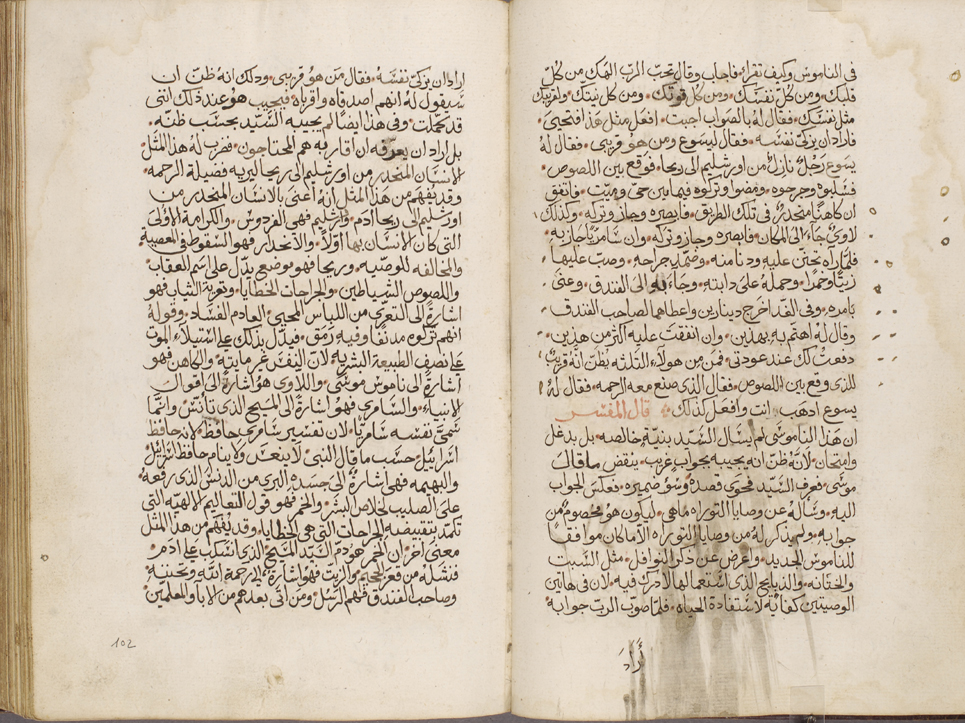 فى الناموس وكيف تقرا؟ فاجاب وقال تحب الرب الهك من كل
قلبك ومن كل نفسك ومن كل قوتك ومن كل نيتك ولقريبك
مثل نفسك فقال له بالصواب اجبت افعل مثل هذا فتحيى
فاراد ان يزكى نفسه فقال ليسوع ومن هو قريبى فقال له
يسوع رجل نازل من اورشليم الى ريحا فوقع بين اللصوص
فسلبوه وجرحوه ومضوا وتركوه فيما بين حى وميت فاتفق
ان كاهنا منحدر فى تلك الطريق فابصره وجاز وتركه وكذلك
لاوى جاء الى المكان فابصره وجاز وتركه وان سامريا جاز به
فلما راه تحنن عليه ودنا منه وضمد جراحه وصب عليها
زيتا وخمرا وحمله على دابته وجاء به الى الفندق وعنى
بامره وفى الغد اخرج دينارين واعطاهما لصاحب الفندق
وقال له اهتم به بهذين وان انفقت عليه اكثر من هذين
دفعت لك عند عودتى فمن من هولاء التلثه يظن انه قريب
للذى وقع بين اللصوص فقال الذى صنع معه الرحمه فقال له
يسوع اذهب انت وافعل كذلك قال المفسر
ان هذا الناموسى لم يسال السيد بنية خالصه بل بدغل
وامتحان لانه ظن انه يجيبه بجواب غريب ينقض ما قال
موسى فعرف السيد فحوى قصده وسو ضميره فعكس الجواب
اليه وساله عن وصايا التوراه ماهى ليكون هو مخصوم من
جوابه ولم يذكر له من وصايا التوراه الا ما كان موافقا
للناموس الجديد واعرض عن ذكر النوافل مثل السبت
والختانه والذبايح الذى استعمالها لا درك فيه لان فى هاتين
الوصيتين كفاية لاستفادة الحياه فلما صوب الرب جوابه
أراد
اراد ان يزكى نفسه فقال من هو قريبى وذلك انه ظن ان
سيقول له انهم اصدقاه واقرباه فيجيب هو عند ذلك اننى
قد كملت وفى هذا ايضا لم يجيبه السيد بحسب ظنه
بل اراد ان يعرفه ان اقاربه هم المحتاجون فضرب له هذا المثل
الانسان المنحدر من اورشليم الى ريحا ليريه فضيلة الرحمه
وقد يفهم من هذا المثل انه اعنى بالانسان المنحدر من
اورشليم الى ريحا ادم واورشليم فهى الفردوس والكرامة الاولى
التى كان الانسان بها اولا والانحدار فهو السقوط فى المعصية
والمخالفه للوصيه وريحا فهو موضع يدل على اسم العقاب
واللصوص الشياطين والجراحات الخطايا وتعرية الثياب فهو
اشارة الى التعرى من اللباس المحيى العادم الفساد وقوله
انهم تركوه مدنفا وفيه رمق فيدل بذلك على استيلاء الموت
على نصف الطبيعة البشريه لان النفس غير مايته والكاهن فهو
اشارة الى ناموس موسى واللاوى هو اشارة الى اقوال
الانبياء والسامرى فهو اشارة الى المسيح الذى تانس وانما
سمى نفسه سامريا لان تفسير سامرى حافظ لانه حافظ
اسراييل حسب ما قال النبى لا ينعس ولا ينام حافظ اسراييل
والبهيمه فهى اشارة الى جسده البرى من الدنس الذى رفعه
على الصليب لخلاص البشر والخمر فهو قول التعاليم الالهيه التى
تكمد بتقبيضه الجراحات التى هى الخطايا وقد يفهم من هذا المثل
معنى اخر ان الخمر هو دم السيد المسيح الذى انسكب على ادم
فنشله من قعر الجحيم والزيت فهو اشارة الى رحمة الله وتحننه
وصاحب الفندق فهم الرسل ومن اتى بعدهم من الابا والمعلمين
102